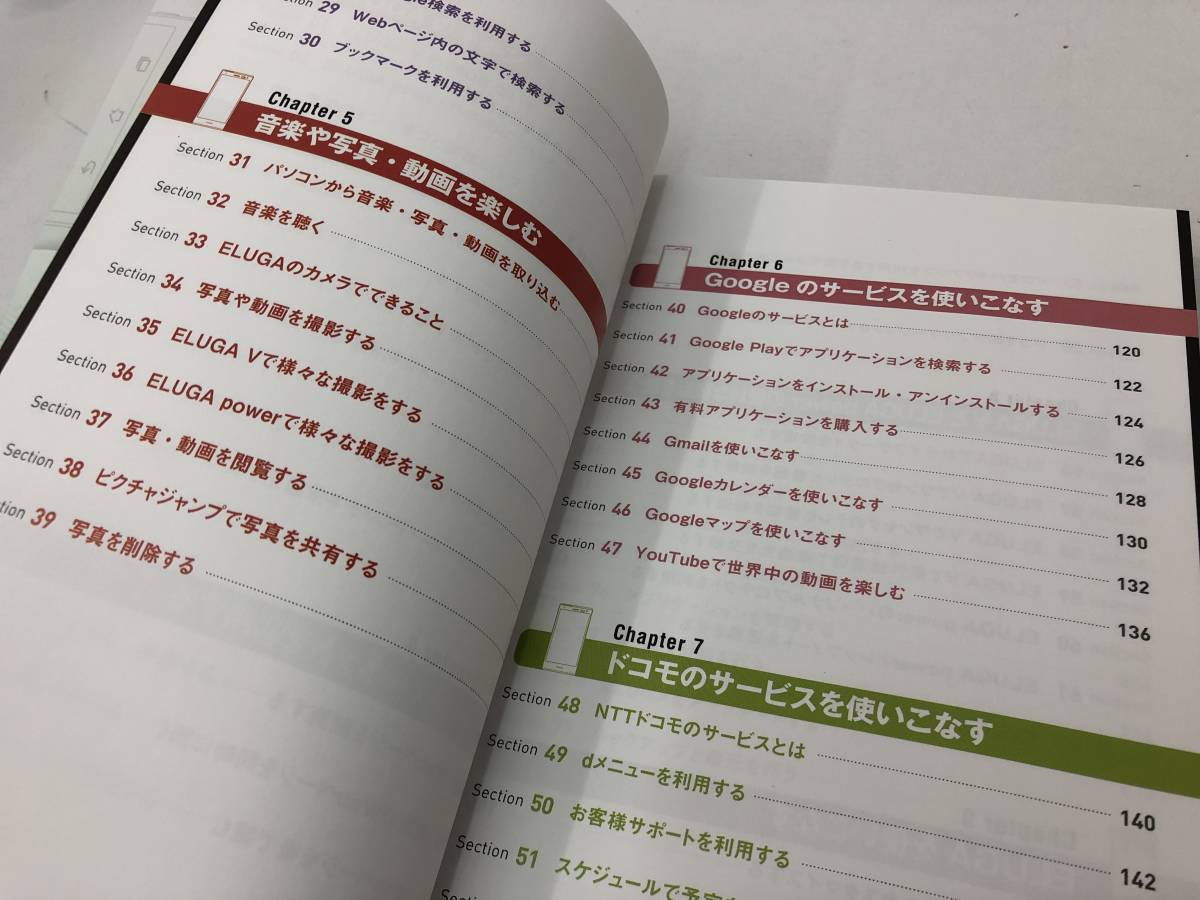 29 Webページ内の文字で検索する
検索を利用する
Section 30 ブックマークを利用する
Chapter 5
音楽や写真・動画を楽しむ
Section 31 パソコンから音楽・写真・動画を取り込む
Section 32 音楽を聴く
Section 33 ELUGAのカメラでできること
Section 34 写真や動画を撮影する
Section 35 ELUGA Vで様々な撮影をする
Section 36 ELUGA powerで様々な撮影をする
Section 37 写真・動画を閲覧する
Section 38 ピクチャジャンプで写真を共有する
39 写真を削除する
Chapter 6
Google のサービスを使いこなす
Section 40 Googleのサービスとは 120
Section 41 Google Playでアプリケーションを検索する 122
Section 42 アプリケーションをインストール・アンインストールする 124
Section 43 有料アプリケーションを購入する 126
Section 44 Gmailを使いこなす 128
Section 45 Googleカレンダーを使いこなす 130
Section 46 Googleマップを使いこなす 132
Section 47 YouTubeで世界中の動画を楽しむ 136
Chapter 7
ドコモのサービスを使いこなす
Section 48 NTTドコモのサービスとは 140
Section 49 dメニューを利用する 142
Section 50 お客様サポートを利用する
Section 51 スケジュールで予定